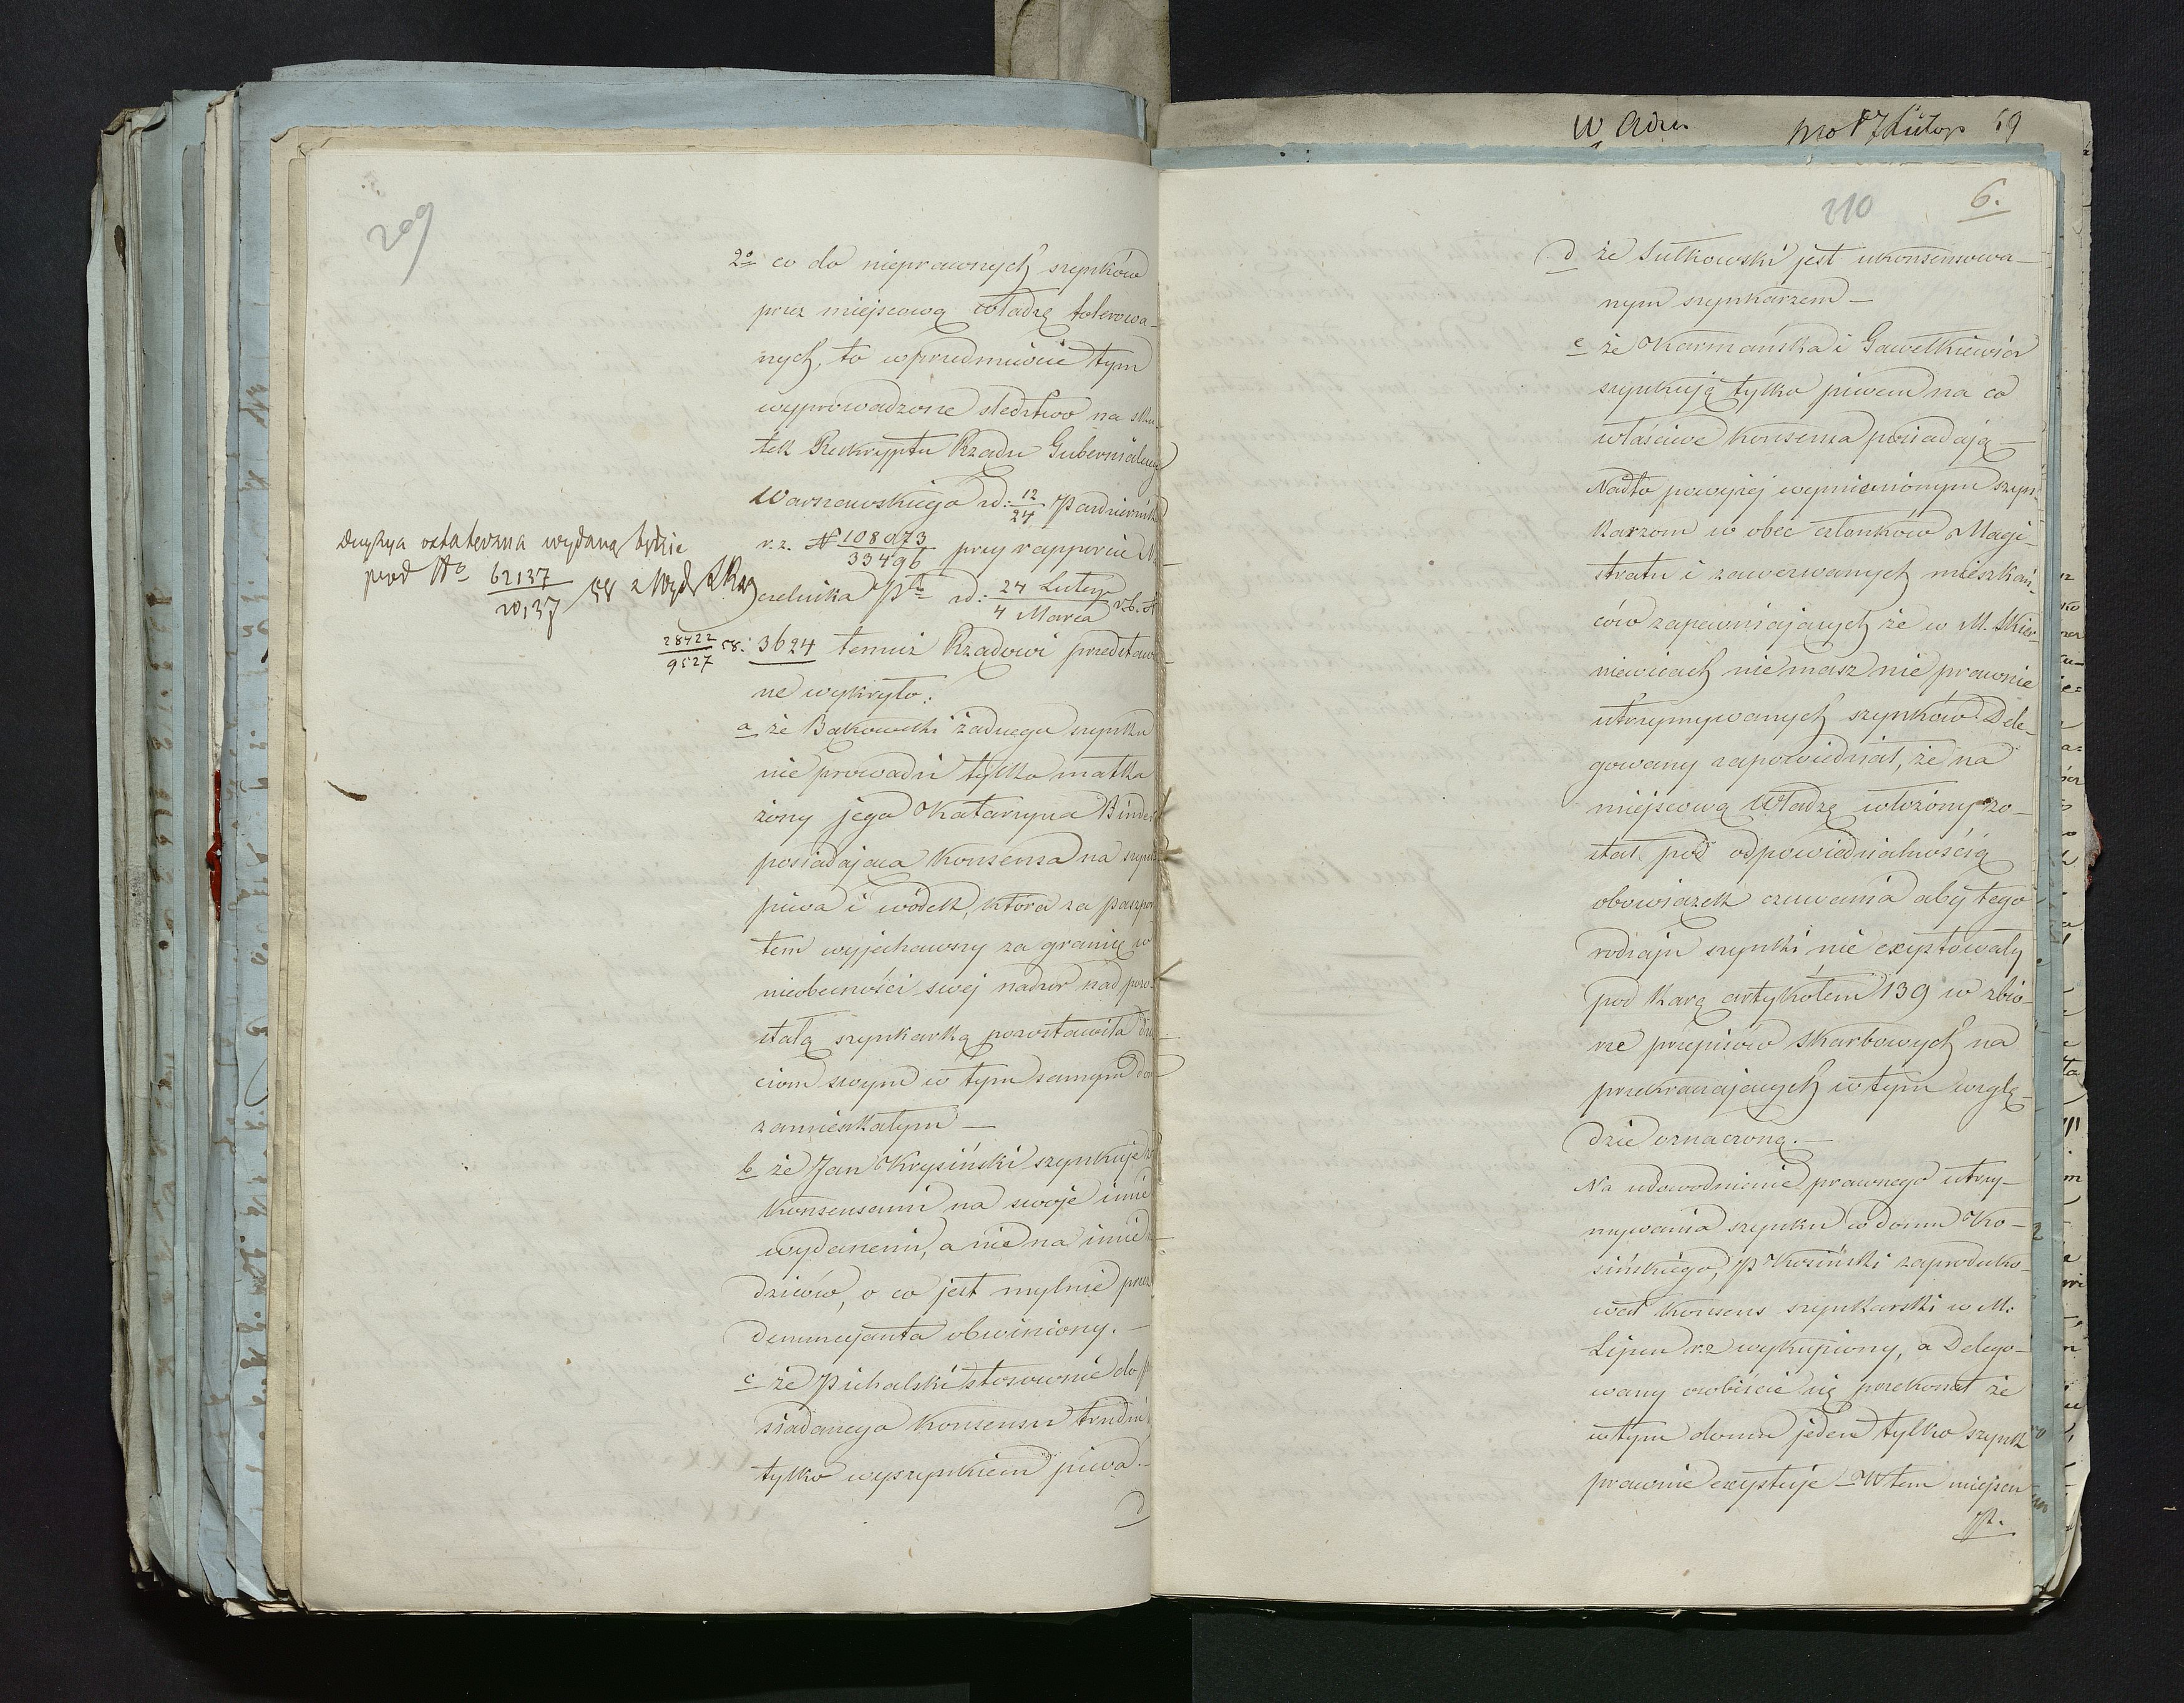 209
2o co do nieprawnych szynków
przez miejscową władzę tolerowa-
nych, to w przedmiocie tym
wyprowadzone śledztwo na sku-
tek Reskryptu Rządu Gubernialnego
Warszawskiego d: 12/24 Październik
r. z. N 108073/33496 przy rapporcie N
czelnika Ptu d: 24 Lutego/4 Marca r. b. N
3624 temuż Rządowi przedstawio
ne wykryło:
Decyzya ostateczna wydaną będzie
pod No 62137/20137 58 z Wydz Skar
28422/9527 58:
a że Bąkowski żadnego szynku
nie prowadzi tylko matka
żony jego Katarzyna Binder
posiadająca Konsensa na szynk
piwa i wódek, która za paszpor
tem wyjechawszy za granicę w
nieobecności swej nadzór nad pozo-
stałą szynkarką pozostawiła dzie
ciom swym w tym samym dom
zamieszkałym —
b że Jan Krysiński szynkuje za
Konsensami na swoje imie
wydanemi, a nie na imie
dziców, o co jest mylnie przez
denuncyanta obwiniony. —
c że Pichalski stosownie do po
siadanego Konsensu trudni
tylko wyszynkiem piwa. —
d
W
pro 17 Lutego 69
210
6.
d że Sułkowski jest ukonsensowa-
nym szynkarzem —
e że Karmańska i Gawełkiewicz
szynkują tylko piwem na co
właściwe Konsensa posiadają —
Nadto powyżej wymienionym szyn-
karzom w obec członków Magi-
stratu i zawezwanych mieszkań-
ców zapewniających że w M. Skier-
niewicach nie masz nie prawnie
utrzymywanych szynków Dele-
gowany zapowiedział, że na
miejscową Władzę włożony zo-
stał pod odpowiedzialnością
obowiązek czuwania aby tego
rodzaju szynki nie exystowały
pod Karą artykułem 139 w zbio-
rze przepisów Skarbowych na
przekraczających w tym wzglę-
dzie oznaczoną. —
Na udowodnienie prawnego utrzy-
mywania szynku w domu Ko-
sińskiego, P Kosiński zaproduko-
wał Konsens szynkarski w M:
Lipcu r. z wykupiony, a Delego-
wany osobiście się przekonał że
w tym domu jeden tylko szynk
prawnie exystuje — W tem miejscu